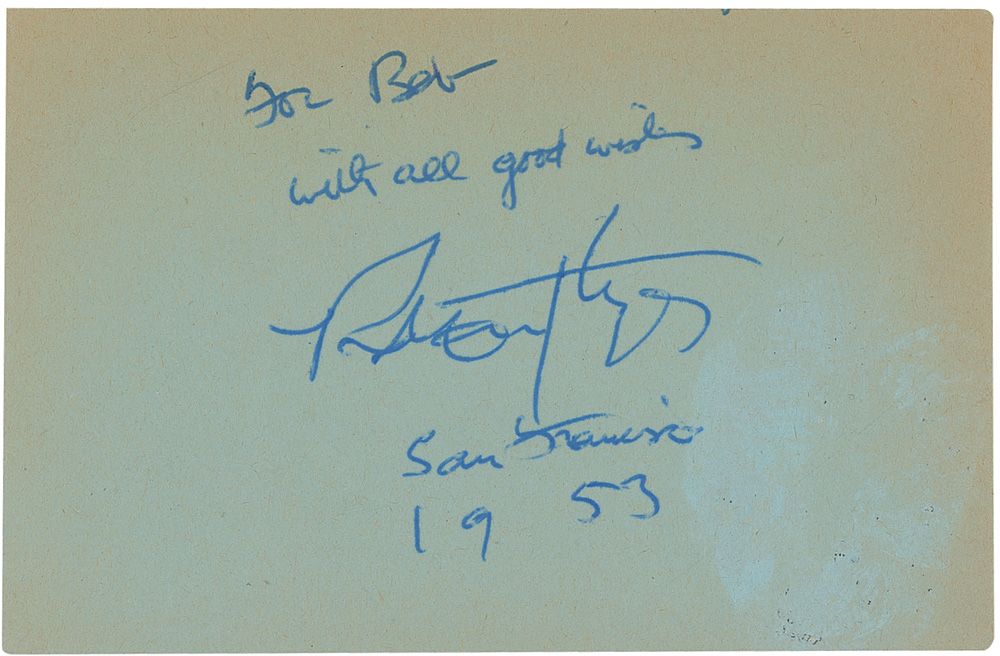 For Bob
with all good wishes
San Francisco
1953